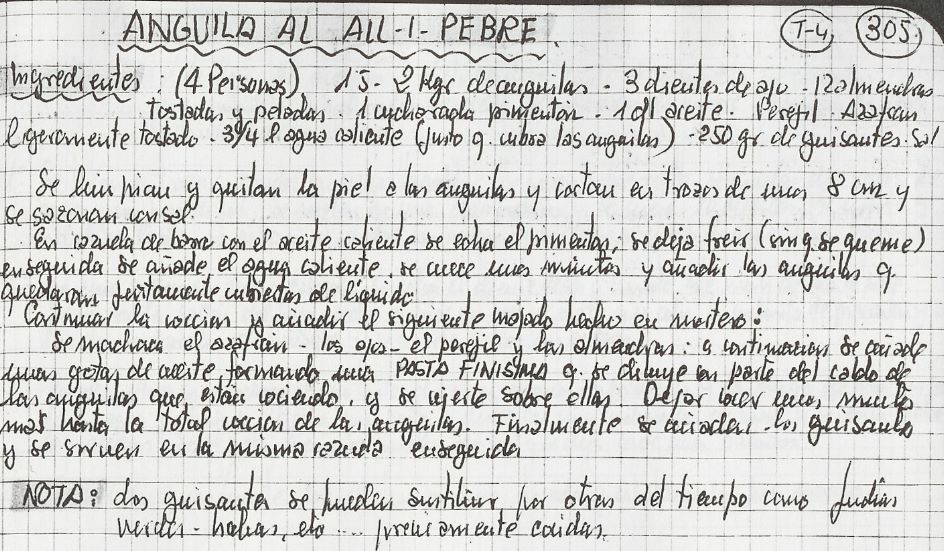 ANGUILA AL ALL-I-PEBRE. T-4 305
Ingredientes: (4 Personas). 1'5 - 2 Kgr de anguilas - 3 dientes de ajo - 12 almendras
tostadas y peladas - 1 cucharada pimentón - 1 dl aceite - Perejil - Azafran
ligeramente tostado - 3/4 l agua caliente (justo q. cubra las anguilas) - 250 gr de guisantes - Sal
Se limpian y quitan la piel a las anguilas y cortan en trozos de unos 8 cm y
se sazonan con sal.
En cazuela de barro con el aceite caliente se echa el pimenton, se deja freir (sin q se queme)
enseguida se añade el agua caliente, se cuece unos minutos y añadir las anguilas q.
quedaran justamente cubiertas de liquido
Continuar la coccion y añadir el siguiente majado hecho en mortero:
Se machaca el azafran - los ajos - el perejil y las almendras: a continuacion se añade
unas gotas de aceite formando una PASTA FINISIMA q. se diluye en parte del caldo de
las anguilas que están cociendo, y se vierte sobre ellas. Dejar cocer unos minutos
mas hasta la total coccion de las anguilas. Finalmente se añaden los guisantes
y se sirven en la misma cazuela enseguida
NOTA: Los guisantes se pueden sustituir por otros del tiempo como Judias
verdes - habas, etc... previamente cocidas.